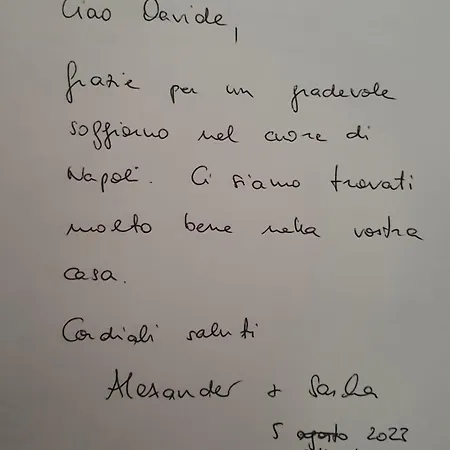 Ciao Davide,
grazie per un gradevole
soggiorno nel cuore di
Napoli. Ci siamo trovati
molto bene nella vostra
casa.
Cordiali saluti
Alexander + Sasha
5 agosto 2023